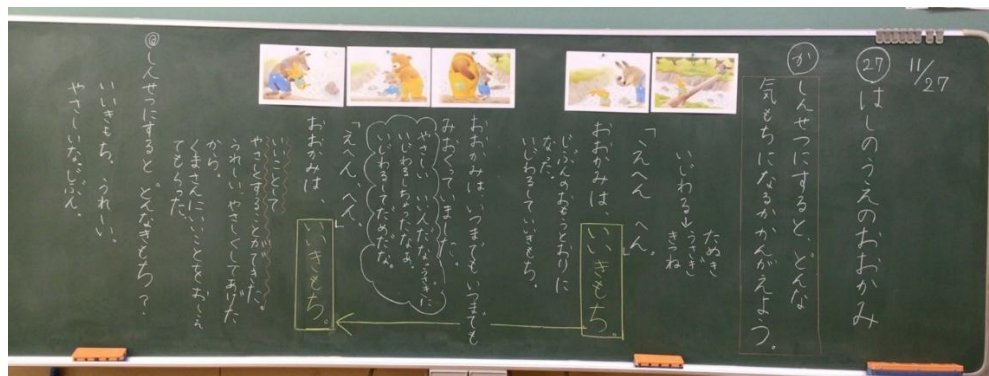 11/27
㉗ はしのうえのおおかみ
か しんせつにすると、どんな
気もちになるかかんがえよう。
いじわる→うさぎ
たぬき
きつね
「えへん へん。」
おおかみは、いいきもち。
じぶんのおもったとおりに
なった。
いじわるしていいきもち。
おおかみは、いつまでも いつまでも
みおくっていました。
やさしい いい人だな。
いじわるしちゃったなあ。
いじわるしてだめだな。
「えへん、へん。」
おおかみは、いいきもち。
いいことして
やさしくすることができた。
うれしい。やさしくしてあげた
から。
くまさんにいいことをおしえ
てもらった。
しんせつにすると どんなきもち?
いいきもち。うれしい。
やさしいな。じぶん。